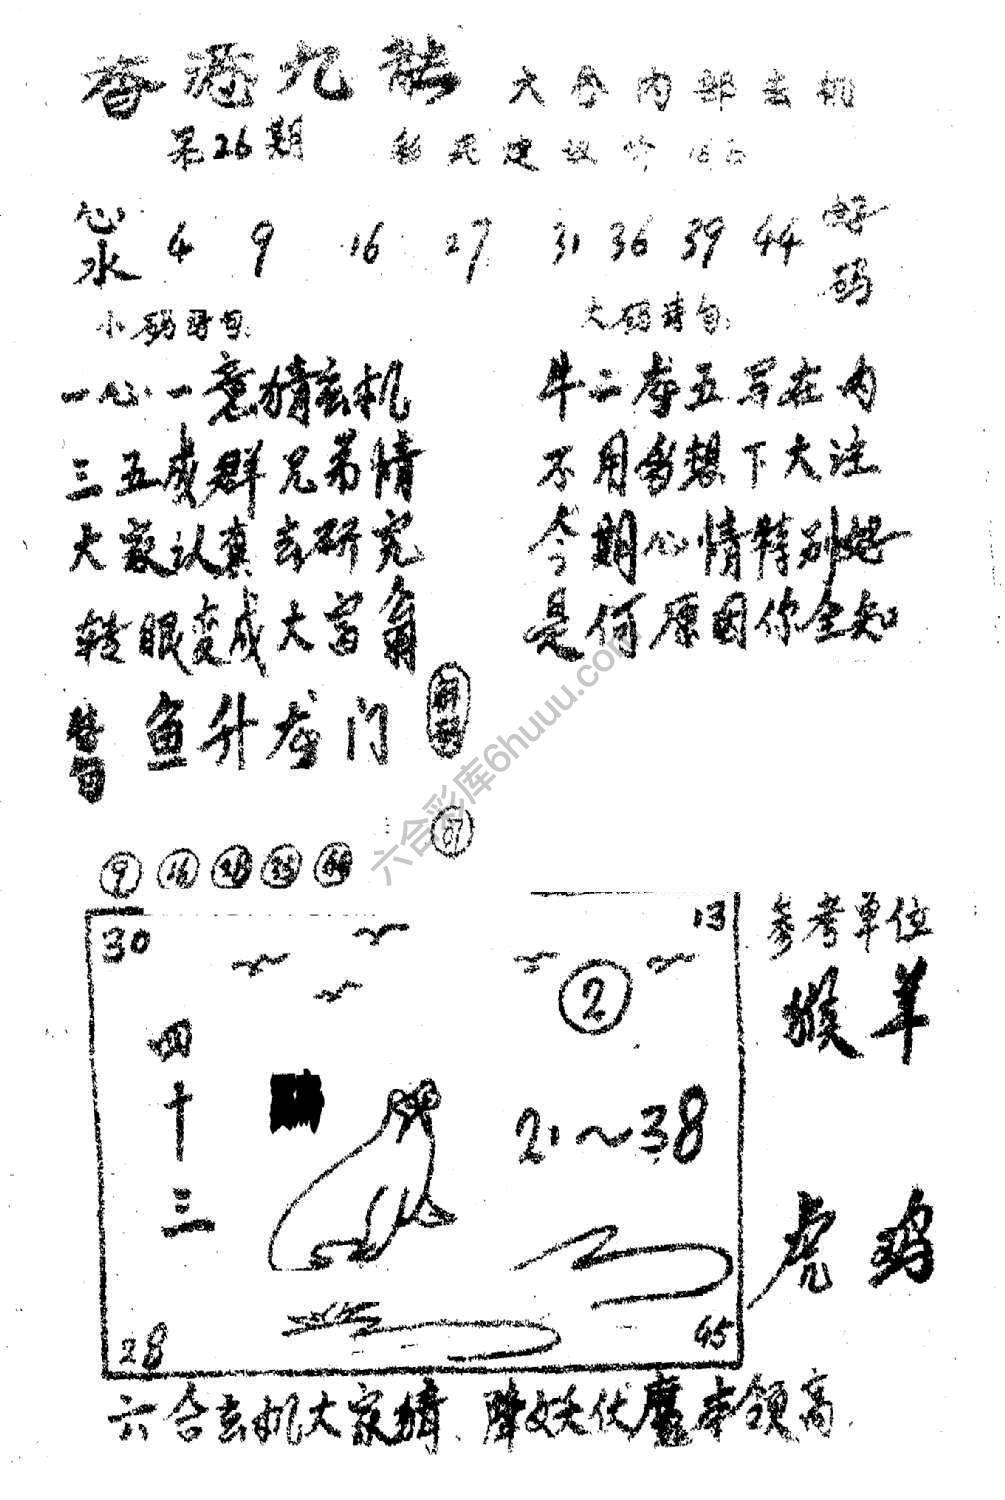 香港九龙 六合内部玄机
第26期 彩民建议
心水 4 9 16 27 31 36 39 44 好码
小码诗句: 大码诗句:
一心一意猜玄机 牛二存五写在内
三五成群兄弟情 不用多想下大注
大家认真去研究 今期心情特别好
转眼变成大富翁 是何原因你全知
赞曰 鱼升龙门 解码
9 16
30 13 参考单位
2 猴 羊
四十三
21~38
虎 鸡
28 45
六合玄机大家猜、降妖伏魔本领高.
六合彩库6huuu.com